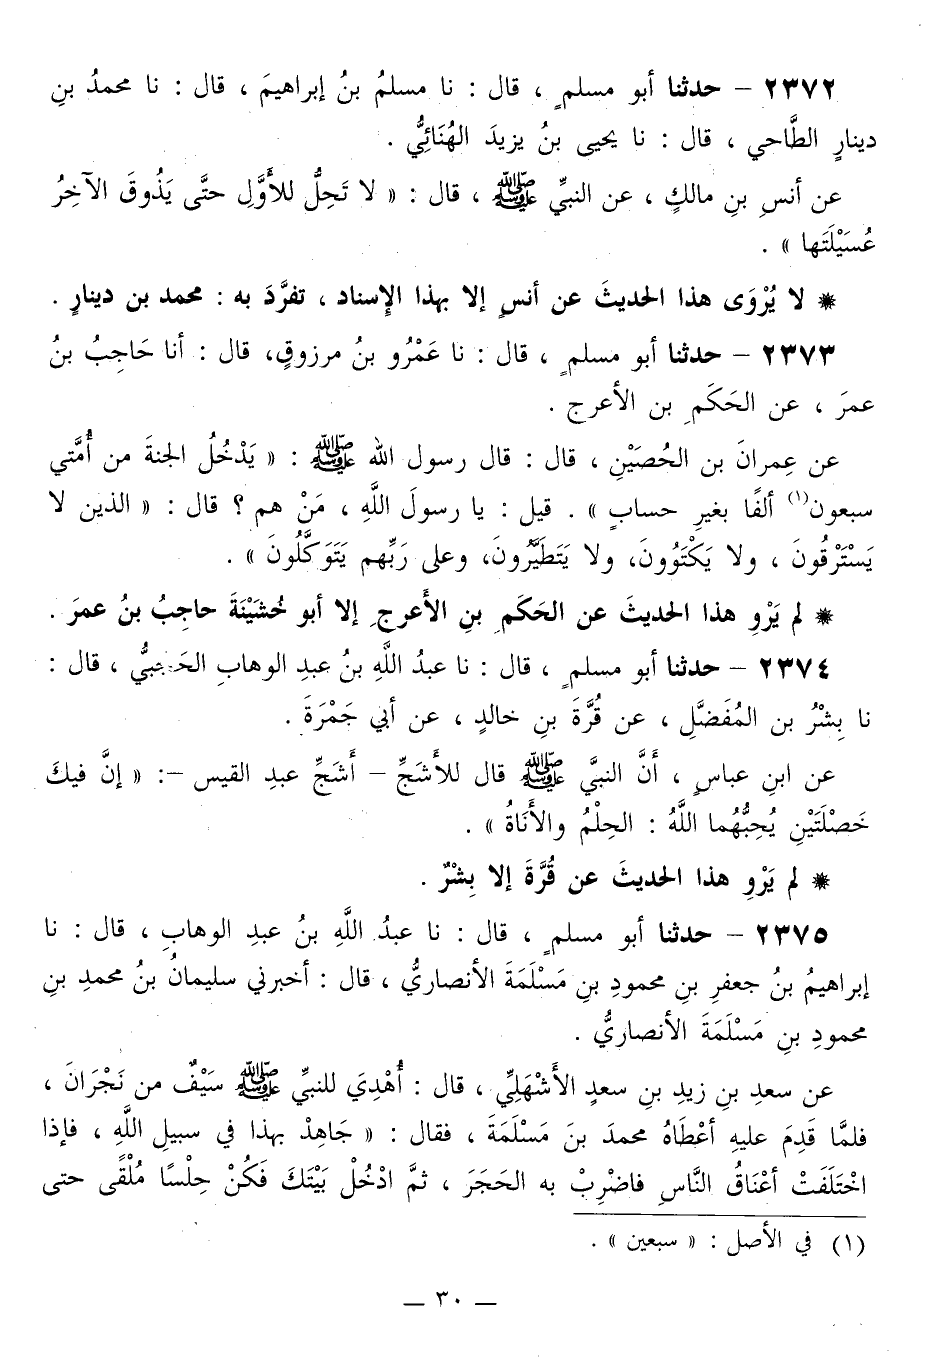 ٢٣٧٢ – حدثنا أبو مسلمٍ ، قال : نا مسلمُ بنُ إبراهيمَ ، قال : نا محمدُ بنِ
دينارٍ الطَّاحي ، قال : نا يحيى بنُ يزيدَ الهُنَائِيُّ .
عن أنسِ بنِ مالكٍ ، عن النبيِّ ﷺ ، قال : « لا تَحِلُّ للأَوَّلِ حتَّى يَذُوقَ الآخِرُ
عُسَيْلَتَها » .
* لا يُرْوَى هذا الحديثَ عن أنسٍ إلا بهذا الإِسناد ، تفرَّدَ به : محمد بن دينارٍ .
٢٣٧٣ – حدثنا أبو مسلمٍ ، قال : نا عَمْرُو بنُ مرزوقٍ، قال : أنا حَاجِبُ بنُ
عمرَ ، عن الحَكَمِ بن الأعرج .
عن عِمرانَ بن الحُصَيْنِ ، قال : قال رسول الله ﷺ : « يَدْخُلُ الجنةَ من أُمَّتي
سبعون(١) ألفًا بغيرِ حسابٍ » . قيل : يا رسولَ اللَّهِ ، مَنْ هم ؟ قال : « الذين لا
يَسْتَرْقُونَ ، ولا يَكْتَوُونَ، ولا يَتَطَيَّرُونَ، وعلى رَبِّهم يَتَوَكَّلُونَ » .
* لم يَرْوِ هذا الحديثَ عن الحَكَمِ بنِ الأَعرجِ إلا أبو خُشَيْنَةَ حاجِبُ بنُ عمرَ .
٢٣٧٤ – حدثنا أبو مسلمٍ ، قال : نا عبدُ اللَّهِ بنُ عبدِ الوهابِ الحَجَبيُّ ، قال :
نا بِشْرُ بن المُفَضَّلِ ، عن قُرَّةَ بنِ خالدٍ ، عن أبي جَمْرَةَ .
عن ابنِ عباسٍ ، أَنَّ النبيَّ ﷺ قال للأَشَجِّ – أَشَجِّ عبدِ القيس –: « إنَّ فيكَ
خَصْلَتَيْنِ يُحِبُّهُما اللَّهُ : الحِلْمُ والأَنَاةُ » .
* لم يَرْوِ هذا الحديثَ عن قُرَّةَ إلا بِشْرٌ .
٢٣٧٥ – حدثنا أبو مسلمٍ ، قال : نا عبدُ اللَّهِ بنُ عبدِ الوهابِ ، قال : نا
إبراهيمُ بنُ جعفرِ بنِ محمودِ بنِ مَسْلَمَةَ الأنصاريُّ ، قال : أخبرني سليمانُ بنُ محمدِ بنِ
محمودِ بنِ مَسْلَمَةَ الأنصاريُّ .
عن سعدِ بنِ زيدِ بنِ سعدٍ الأَشْهَلِيِّ ، قال : أُهْدِيَ للنبيِّ ﷺ سَيْفٌ من نَجْرَانَ ،
فلمَّا قَدِمَ عليهِ أعْطَاهُ محمدَ بنَ مَسْلَمَةَ ، فقال : « جَاهِدْ بهذا في سبيلِ اللَّهِ ، فإذا
اخْتَلَفَتْ أعْنَاقُ النَّاسِ فاضْرِبْ به الحَجَرَ ، ثمَّ ادْخُلْ بَيْتَكَ فَكُنْ حِلْسًا مُلْقًى حتى
(١) في الأصل : « سبعين » .
— ٣٠ —